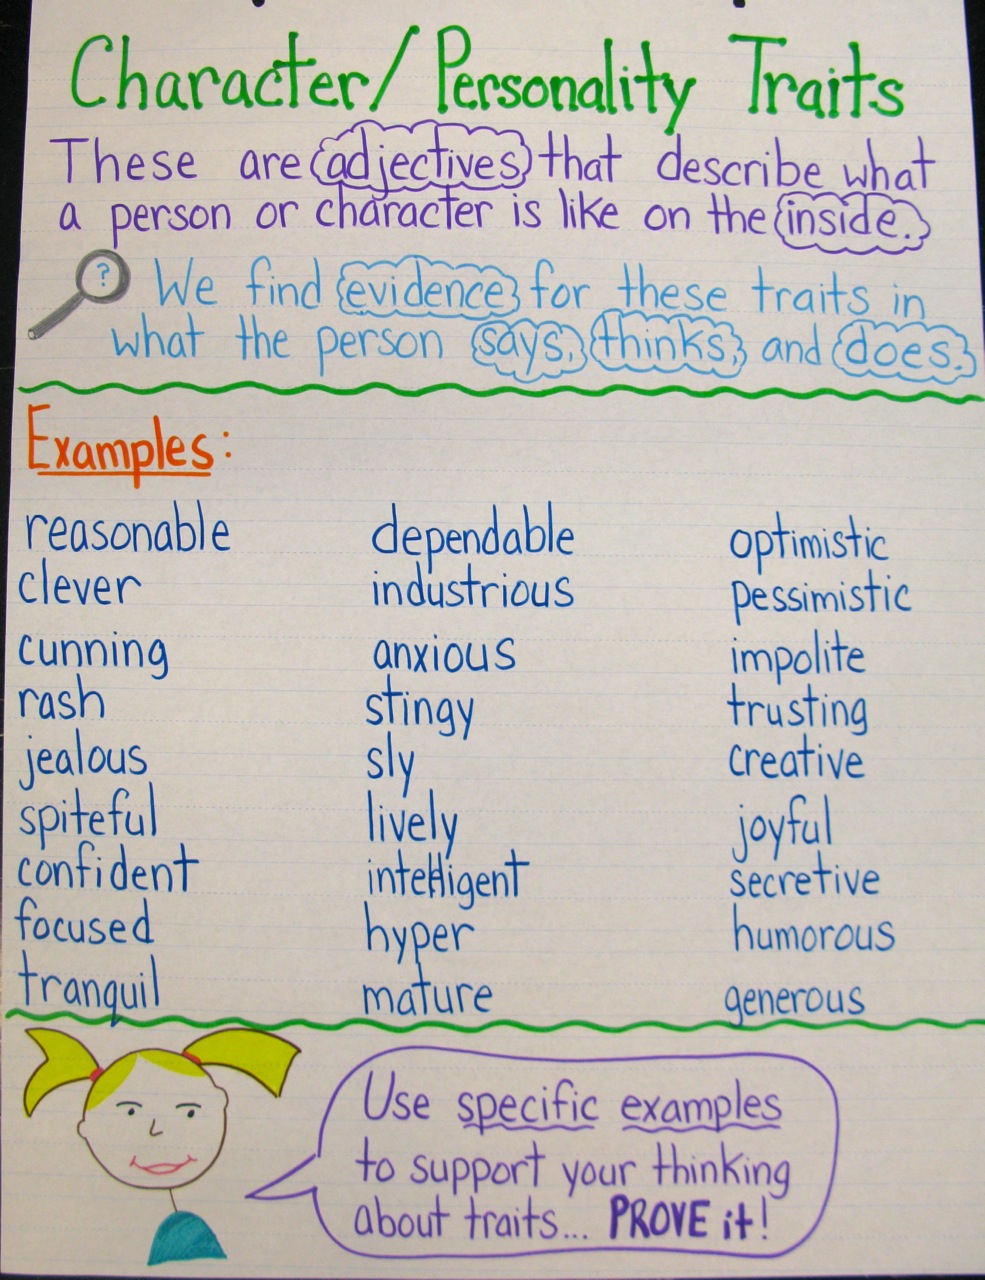 Character/Personality Traits
These are adjectives that describe what
a person or character is like on the inside.
?
We find evidence for these traits in
what the person says, thinks, and does.
Examples:
reasonable dependable optimistic
clever industrious pessimistic
cunning anxious impolite
rash stingy trusting
jealous sly creative
spiteful lively joyful
confident intelligent secretive
focused hyper humorous
tranquil mature generous
Use specific examples
to support your thinking
about traits... PROVE it!